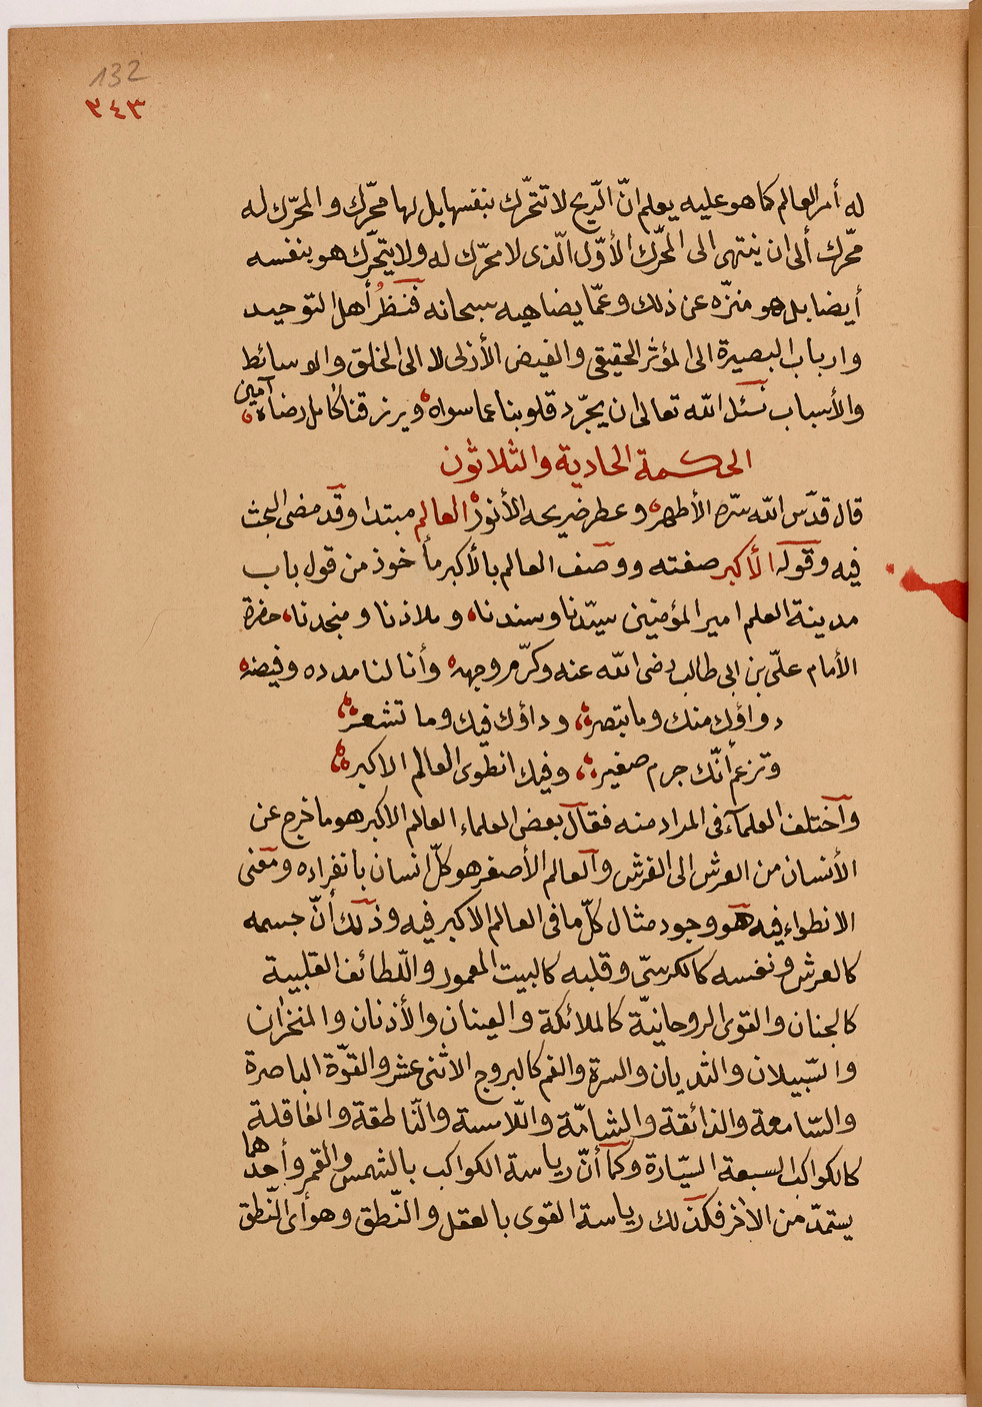 132
٢٤٣
له أمر العالم كما هو عليه يعلم انّ الرّيح لا تتحّرك بنفسها بل لها محّرك والمحّرك له
محّرك ألى ان ينتهى الى المحّرك الأوّل الّذى لا محّرك له ولا يتحّرك هو بنفسه
أيضا بل هو منزّه عن ذلك وعمّا يضاهيه سبحانه فنظرُ أهل التوحيد
وارباب البصيرة الى المؤثر الحقيقى والفيض الأزلى لا الى الخلق والوسائط
والأسباب نسئل الله تعالى ان يجرّد قلوبنا عما سواه ويرزقنا كامل رضاه آمين
الحكمة الحادية والثلاثون
قال قدّس الله سرّه الأطهر وعطر ضريحه الأنور العالم مبتدا وقد مضى البحث
فيه وقوله الأكبر صفته ووصف العالم بالأكبر مأخوذ من قول باب
مدينة العلم امير المؤمنين سيّدنا وسندنا وملاذنا ومنجدنا حضرة
الأمام علىّ بن ابى طالب رضى الله عنه وكرّم وجهه وأنالنا مدده وفيضه
دواؤك منك وما تبصر وداؤك فيك وما تشعر
وتزعم أنّك جرم صغير وفيك انطوى العالم الاكبر
وآختلف العلمآء فى المراد منه فقال بعض العلماء العالم الاكبر هو ما خرج عن
الأنسان من العرش الى الفرش والعالم الأصغر هو كلّ انسان بانفراده ومعنى
الانطواء فيه هو وجود مثال كلّ ما فى العالم الاكبر فيه وذلك أنّ جسمه
كالعرش ونفسه كالكرسّى وقلبه كالبيت المعمور واللّطائف القلبية
كالجنان والقوى الروحانيّة كالملائكة والعينان والأذنان والمنخران
والسّبيلان والثديان والسرة والفم كالبروج الاثنى عشر والقوّة الباصرة
والسّامعة والذائقة والشامّة واللّامسة والنّاطقة والعاقلة
كالكواكب السبعة السيّارة وكما أنّ رياسة الكواكب بالشمس والقمر وأحدهما
يستمدّ من الاخر فكذلك رياسة القوى بالعقل والنّطق وهو أى النّطق